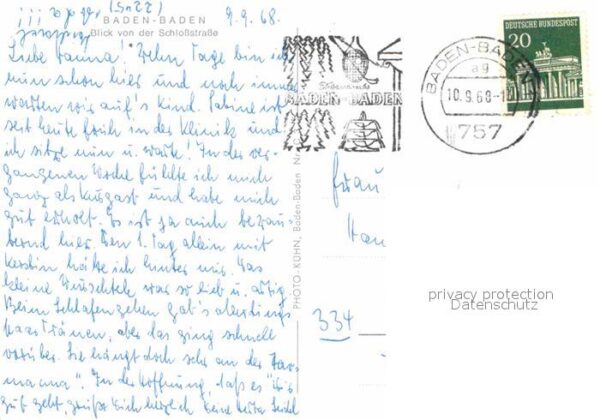 (5022)
BADEN-BADEN
Blick von der Schloßstraße
9.9.68.
Liebe Hanna! Zehn Tage bin ich
nun schon hier und noch immer
warten wir auf's Kind. Sabine ist
seit heute früh in der Klinik und
ich sitze nun u. warte! In der ver-
gangenen Woche fühlte ich mich
ganz als Kurgast und habe mich
gut erholt. Es ist ja auch bezau-
bernd hier. Den 1. Tag allein mit
Kerstin hätte ich hinter mir. Das
kleine Wuschele war so lieb u. artig.
Beim Schlafengehen gab's allerdings
paar Tränen, aber das ging schnell
vorüber. Sie hängt doch sehr an der
mama". In der Hoffnung, daß es
gut geht, grüßt Dich herzlich
PHOTO-KÜHN, Baden-Baden Nr
BADEN-BADEN
BADEN-BADEN
ag
10.9.68-1
757
DEUTSCHE BUNDESPOST
20
Frau
Han
334
privacy protection
Datenschutz